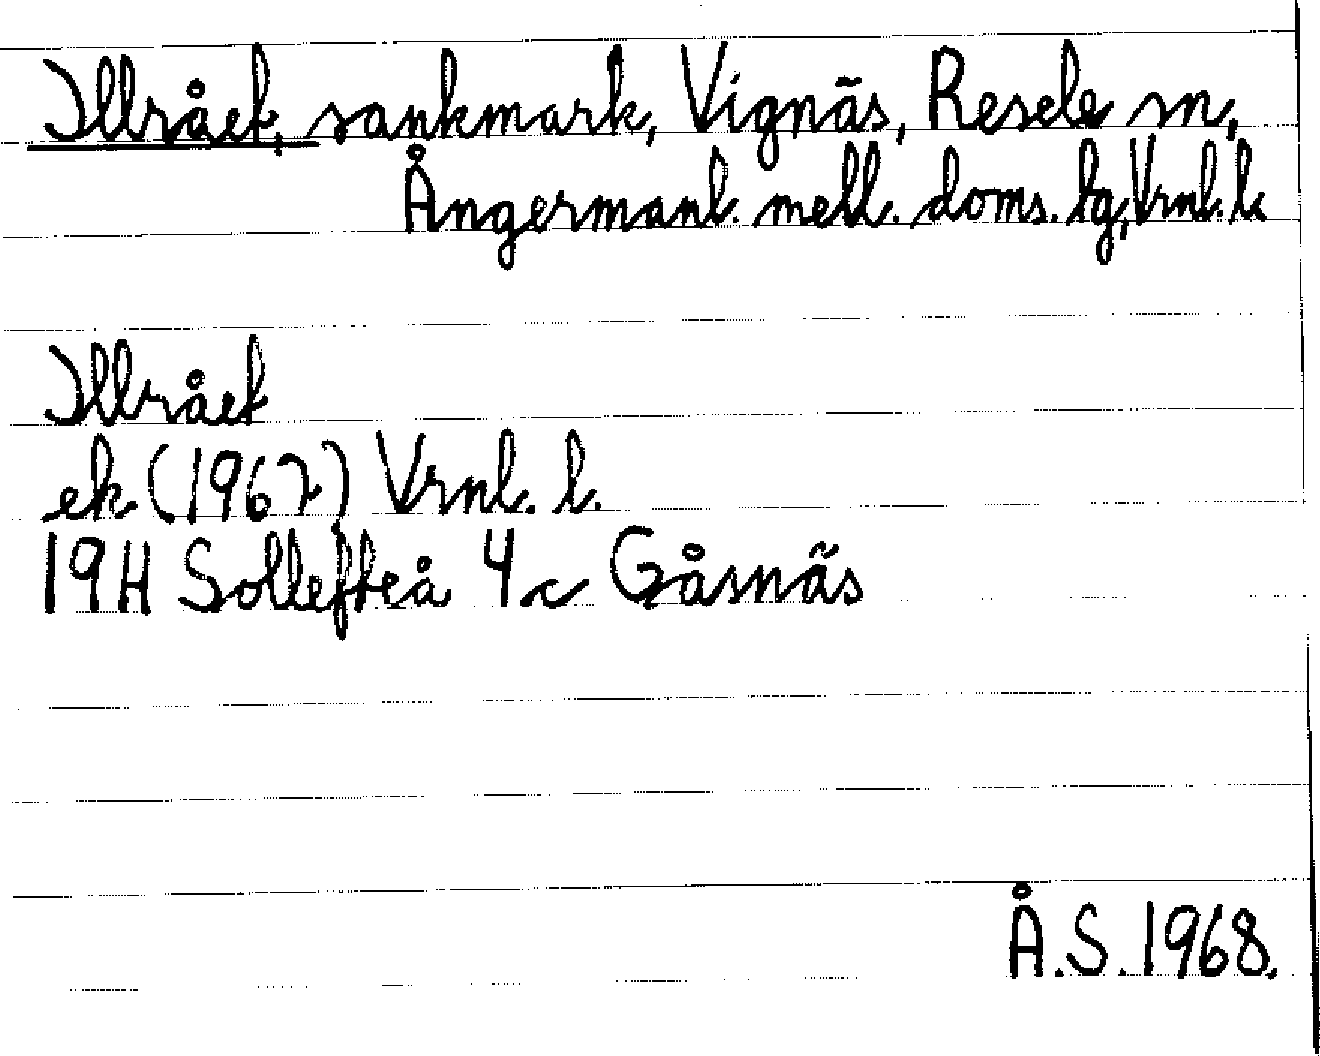 Illråek, sankmark, Vignäs, Resele sn,
Ångermanl. mell. doms. lg, Vrnl. l.
Illråek
ek (1967) Vrnl. l.
19H Sollefteå 4c Gåsnäs
Å.S. 1968.